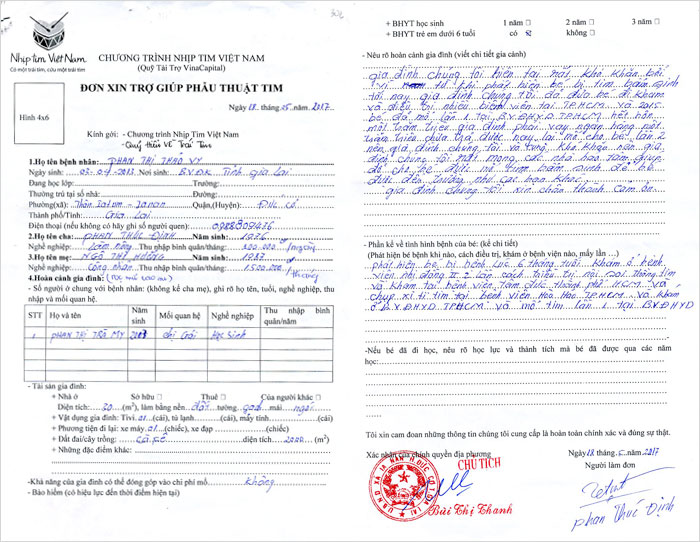 Nhịp tim Việt Nam
Có một trái tim, cứu một trái tim
CHƯƠNG TRÌNH NHỊP TIM VIỆT NAM
(Quỹ Tài Trợ VinaCapital)
ĐƠN XIN TRỢ GIÚP PHẪU THUẬT TIM
Ngày 18. tháng .05. năm .2017
Hình 4x6
Kính gởi: - Chương trình Nhịp Tim Việt Nam
- Quỹ hiểu Về Trái Tim
1.Họ tên bệnh nhân: PHAN THỊ THẢO VY
Ngày sinh: 03-04-2013. Nơi sinh: B.V.Đ.K Tỉnh gia Lai
Đang học lớp: Trường:
Thường trú tại số nhà: Đường:
Phường(xã): Thôn Iatom - Ianan Quận,(Huyện): Đức cơ
Thành phố/Tỉnh: Gia Lai
Điện thoại (nếu không có hãy ghi số người quen): 0988809476
2.Họ tên cha: PHAN THÚC ĐỊNH Năm sinh: 1976
Nghề nghiệp: Làm nông Thu nhập bình quân/tháng: 300.000 /ngày
3.Họ tên mẹ: NGÔ THỊ HƯỜNG Năm sinh: 1987
Nghề nghiệp: Công nhân Thu nhập bình quân/tháng: 1.500.000/tháng
4.Hoàn cảnh gia đình:
- Số người ở chung với bệnh nhân: (không kể cha mẹ), ghi rõ họ tên, tuổi, nghề nghiệp, thu
nhập và mối quan hệ.
STT Họ và tên Năm sinh Mối quan hệ Nghề nghiệp Thu nhập bình quân/năm
1 PHAN THỊ TRÀ MY chị Gái Học Sinh
- Tài sản gia đình:
+ Nhà ở Sở hữu □ Thuê □ Của người khác □
Diện tích: 30 (m²), làm bằng nền đất tường gạch mái ngói
+ Vật dụng gia đình: Tivi .01 (cái), tủ lạnh (cái), máy tính (cái)
+ Phương tiện đi lại: xe máy .01 (chiếc), xe đạp (chiếc)
+ Đất đai/cây trồng: cà fê diện tích 2000 (m²)
+ Những đặc điểm khác:
-Khả năng của gia đình có thể đóng góp vào chi phí mổ: không
- Bảo hiểm (có hiệu lực đến thời điểm hiện tại)
+ BHYT học sinh 1 năm □ 2 năm □ 3 năm □
+ BHYT trẻ em dưới 6 tuổi có không □
- Nêu rõ hoàn cảnh gia đình (viết chi tiết gia cảnh)
gia đình chúng tôi hiện tại rất khó khăn bởi
vì từ khi phát hiện bé bị tim bẩm sinh
tới nay gia đình chúng tôi đã đưa bé đi khám
và điều trị nhiều bệnh viện tại TP.HCM và 2015
bé đã mổ lần 1 tại B.V.Đ.H.Y.D.TP.HCM hết hơn
một trăm triệu gia đình phải vay ngân hàng một
trăm triệu chưa trả được nay lại mổ cho bé lần 2
nên gia đình chúng tôi vô cùng khó khăn nên gia
đình chúng tôi rất mong các nhà hảo tâm giúp
đỡ cháu bé được mổ tim bẩm sinh để bé
được đến trường như các bạn khác
gia đình chúng tôi xin chân thành cảm ơn
- Phần kể về tình hình bệnh của bé: (kể chi tiết)
(Phát hiện bé bệnh khi nào, cách điều trị, khám ở bệnh viện nào, mấy lần ...)
phát hiện bé bị bệnh lúc 6 tháng tuổi. Khám ở bệnh
viện nhi đồng II 2 lần cách điều trị nội soi thông tim
và khám tại bệnh viện tâm đức thành phố HCM và
chụp xi ti tim tại bệnh viện Hoà hảo TP.HCM và khám
ở B.V.Đ.H.Y.D TP.HCM và mổ tim lần 1 tại B.V.Đ.H.Y.D
-Nếu bé đã đi học, nêu rõ học lực và thành tích mà bé đã được qua các năm
học:
Tôi xin cam đoan những thông tin chúng tôi cung cấp là hoàn toàn chính xác và đúng sự thật.
Xác nhận của chính quyền địa phương
Ngày 18. tháng .5. năm .2017
Người làm đơn
CHỦ TỊCH
Bùi Thị Thanh
phan Thúc Định